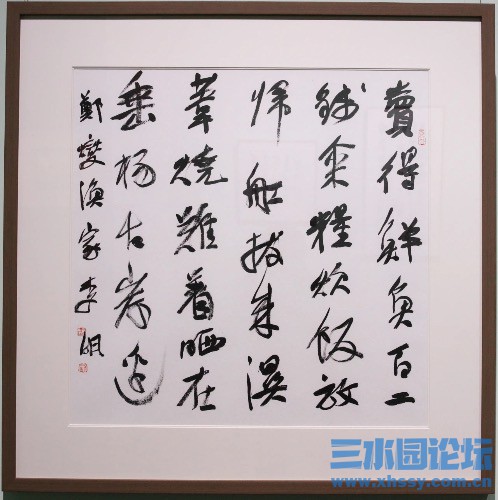 賣得鮮魚百二
錢籴糧炊飯放
歸船拔来濕
葦燒難着晒在
垂楊古岸邊
鄭燮漁家李
三水园论坛
www.xhssy.com.cn